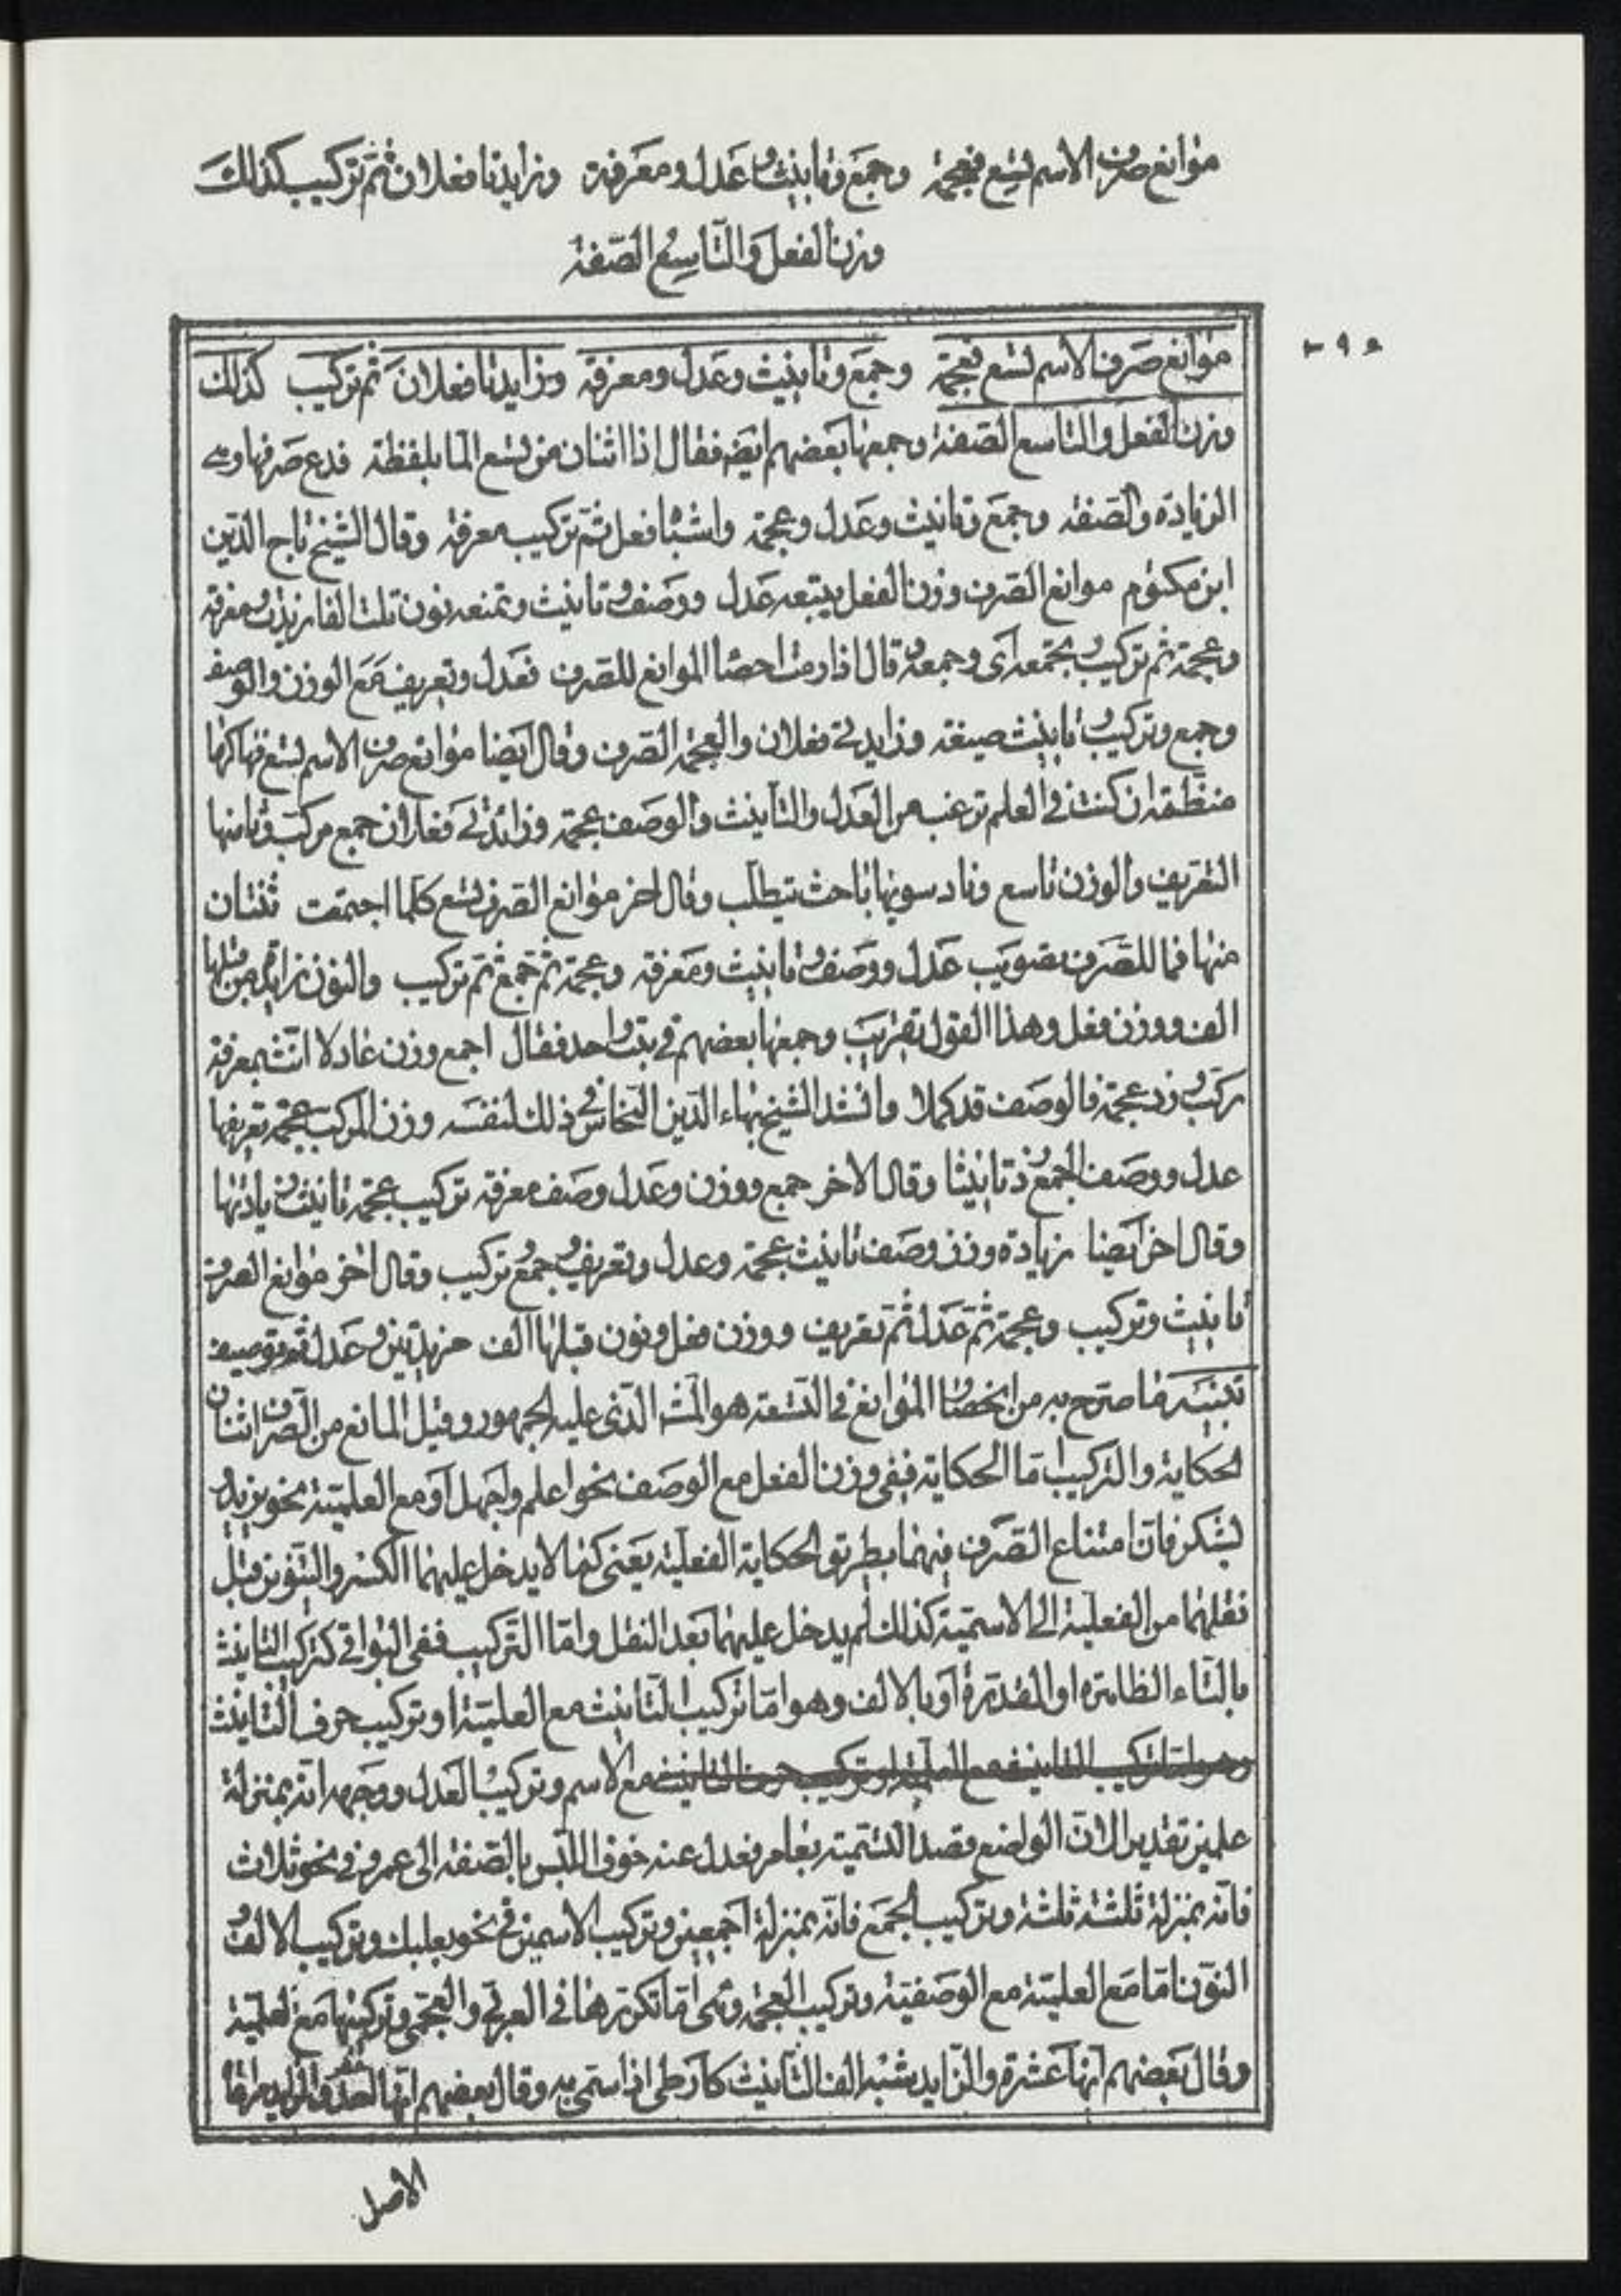 موانع صرف الاسم تسع فعجمة وجمع وتانيث وعدل ومعرفة وزايدتا فعلان ثم تركيب كذلك
وزن الفعل والتاسع الصفة
موانع صرف الاسم تسع فعجمة وجمع وتانيث وعدل ومعرفة وزايدتا فعلان ثم تركيب كذلك
وزن الفعل والتاسع الصفة وجمعها بعضهم ايضه فقال اذا اثنان من تسع الما بلفظة فدع صرفها وهي
الزيادة والصفة وجمع وتانيث وعدل وعجمة واشباه فعل ثم تركيب معرفة وقال الشيخ تاج الدين
ابن مكتوم موانع الصرف وزن الفعل يتبعه عدل ووصف وتانيث وتمنعه نون تلت الفا زيدت ومعرفة
وعجمة ثم تركيب وتجمعه اى وجمعه وقال اذا رمت احصا الموانع للصرف فعدل وتعريف مع الوزن والوصف
وجمع وتركيب وتانيث صيغة وزايدتي فعلان والعجمة الصرف وقال ايضا موانع صرف الاسم تسع فهاكها
منظمة ان كنت في العلم ترغب هي العدل والتانيث والوصف عجمة وزائدتي فعلان جمع مركب وثامنها
التعريف والوزن تاسع وزاد سويها باحث يتطلب وقال اخر موانع الصرف تسع كلما اجتمعت ثنتان
منها فما للصرف تصويب عدل ووصف وتانيث ومعرفة وعجمة ثم جمع ثم تركيب والنون زايدة من قبلها
الف ووزن فعل وهذا القول تقريب وجمعها بعضهم في بيت واحد فقال اجمع وزن عادلا انث بمعرفة
ركب وزد عجمة فالوصف قد كملا وانشد الشيخ بهاء الدين النحاس في ذلك لنفسه وزن المركب عجمة تعريفها
عدل ووصف الجمع زد تانيثا وقال الاخر جمع ووزن وعدل وصف معرفة تركيب عجمة تانيث زيادتها
وقال اخر ايضا زيادة وزن وصف تانيث عجمة وعدل وتعريف وجمع تركيب وقال اخر موانع الصرف
تانيث وتركيب وعجمة ثم عدل ثم تعريف ووزن فعل ونون قبلها الف مزيدتين وعدل ثم توصيف
تنبيه ما صرح به من انحصار الموانع في التسعة هو المش الذى عليه الجمهور وقيل المانع من الصرف اثنان
الحكاية والتركيب اما الحكاية ففي وزن الفعل مع الوصف نحو اعلم واجهل او مع العلمية نحو يزيد
يشكر فان امتناع الصرف فيهما بطريق الحكاية الفعلية يعنى كما لا يدخل عليهما الكسر والتنوين قبل
نقلهما من الفعلية الى الاسمية كذلك لم يدخل عليهما بعد النقل واما التركيب ففي البواقي كتركيب التانيث
بالتاء الظاهرة او المقدرة او بالالف وهو اما تركيب التانيث مع العلمية او تركيب حرف التانيث
وهو اما تركيب التانيث مع العلمية او تركيب حرف التانيث مع الاسم وتركيب العدل ووجهه انه بمنزلة
علمين تقديرا لان الواضع قصد التسمية بعامر فعدل عنه خوف اللبس بالصفة الى عمر وفي نحو ثلاث
فانه بمنزلة ثلثة ثلثة وتركيب الجمع فانه بمنزلة اجمعين وتركيب الاسمين في نحو بعلبك وتركيب الالف و
النون اما مع العلمية مع الوصفية وتركيب العجمة وهى اما تكررها في العربي والعجمي وتركيبها مع العلمية
وقال بعضهم انها عشرة والزايد شبه الف التانيث كارطى اذا سمى به وقال بعضهم انها احد والزايد مراقاة
الاصل